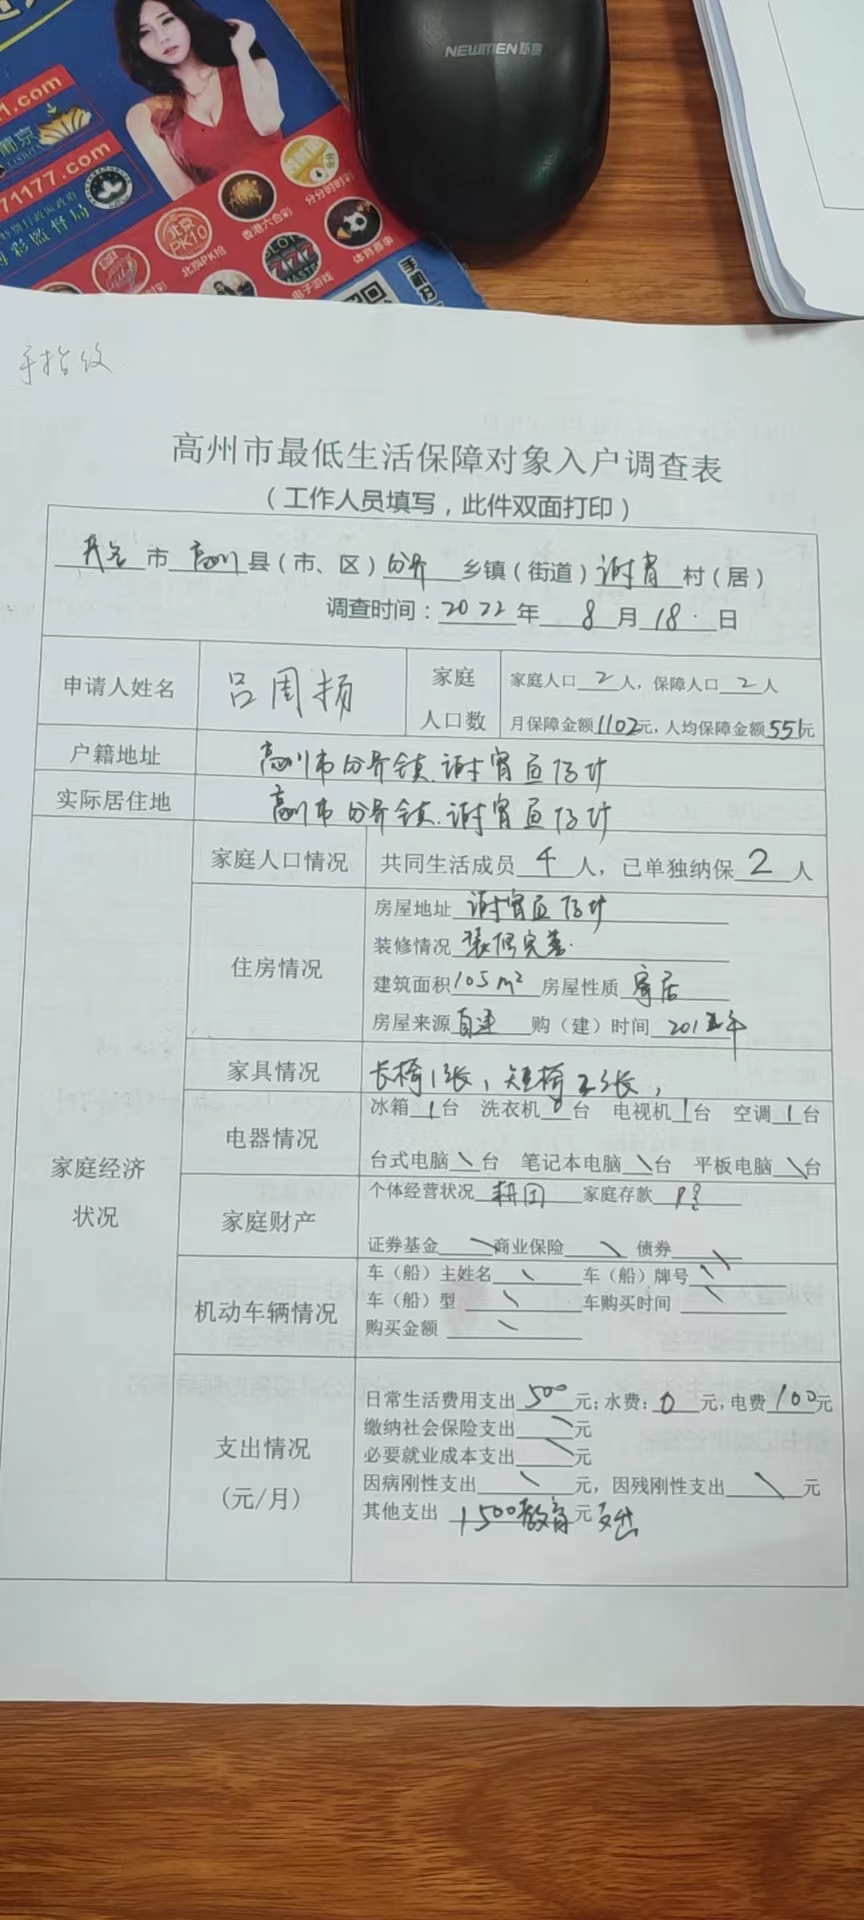 NEWMEN 新贵
1.com
71177.com
北京PK10
北京PK拾
香港六合彩
分分时时彩
SLOT
777
电子游戏
体育赛事
手指纹
高州市最低生活保障对象入户调查表
（工作人员填写，此件双面打印）
茂名市高州县（市、区）分界乡镇（街道）谢村(居)
调查时间：2022年8月18日
申请人姓名 吕周扬 家庭人口数 家庭人口2人，保障人口2人
月保障金额1102元，人均保障金额551元
户籍地址 高州市分界镇谢
实际居住地 高州市分界镇谢
家庭经济状况
家庭人口情况 共同生活成员4人，已单独纳保2人
住房情况 房屋地址 谢
装修情况 装修完善
建筑面积105m² 房屋性质 居
房屋来源 自建 购（建）时间 201年
家具情况 长椅1张，短椅2张，
电器情况 冰箱1台 洗衣机0台 电视机1台 空调1台
台式电脑\台 笔记本电脑\台 平板电脑\台
家庭财产 个体经营状况 耕田 家庭存款
证券基金\商业保险\债券\
机动车辆情况 车（船）主姓名\车（船）牌号\
车（船）型\车购买时间\
购买金额\
支出情况(元/月) 日常生活费用支出500元；水费：0元，电费100元
缴纳社会保险支出\元
必要就业成本支出\元
因病刚性支出\元，因残刚性支出\元
其他支出 1500教育元支出